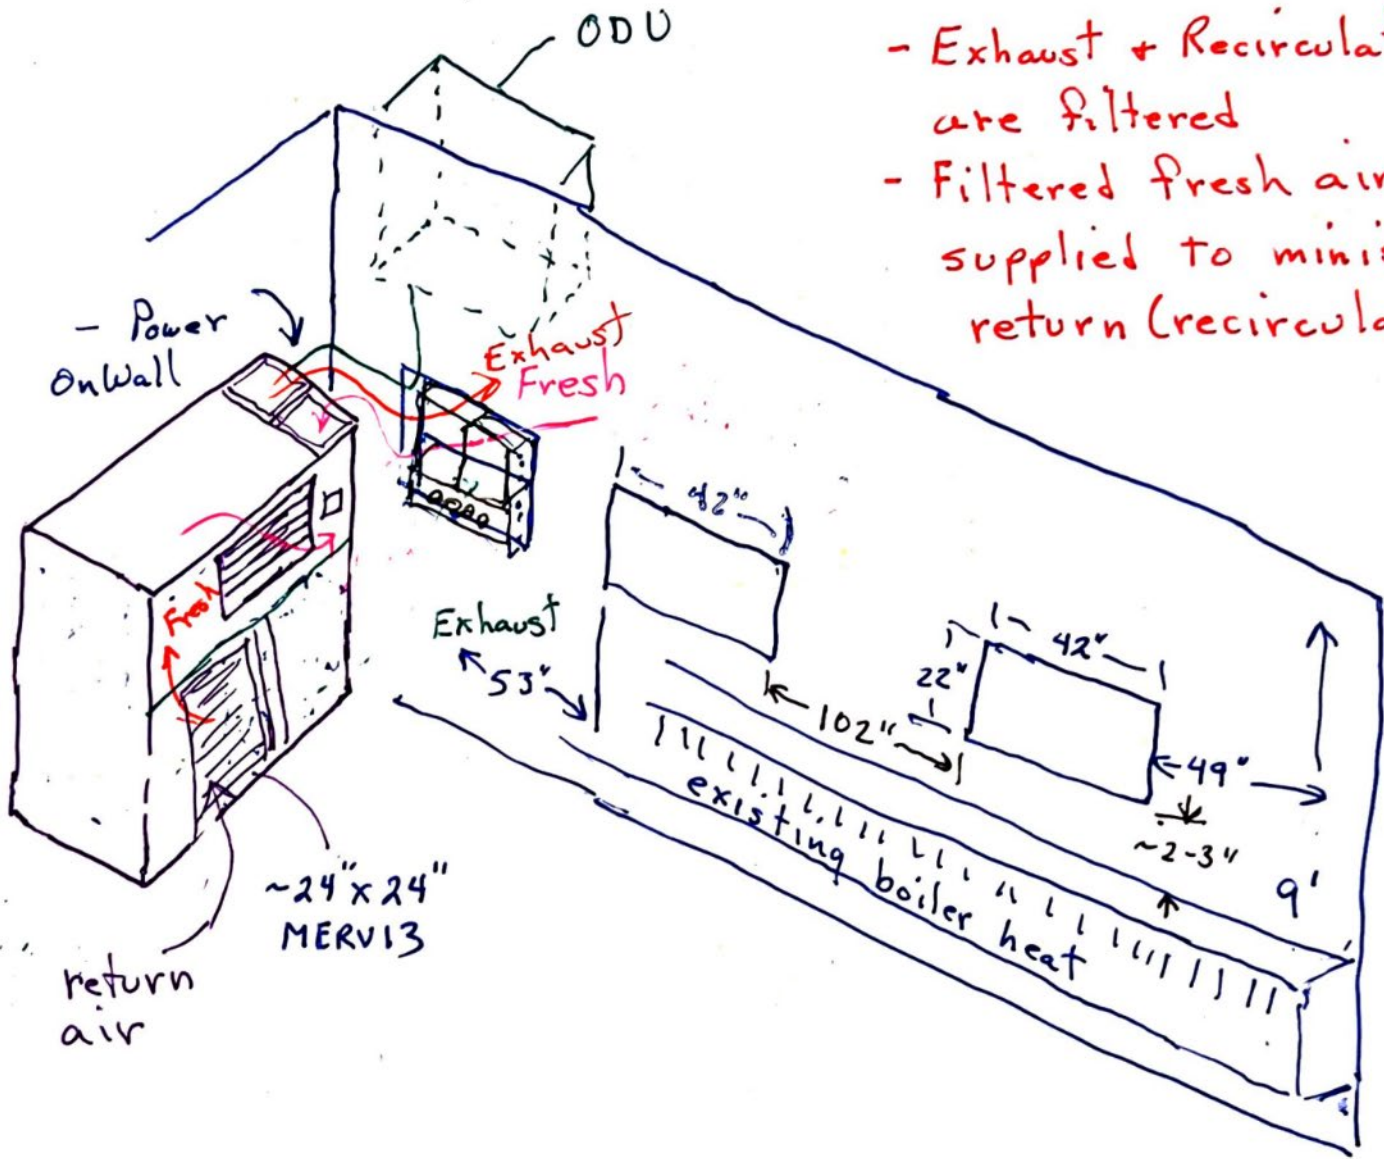 ODU
- Exhaust + Recirculat
are filtered
- Filtered fresh air
supplied to mini
return (recircul
- Power
On Wall
Exhaust
Fresh
42"
Fresh
Exhaust
53"
22"
42"
102"
49"
~2-3"
9'
existing boiler heat
~24" x 24"
MERV13
return
air